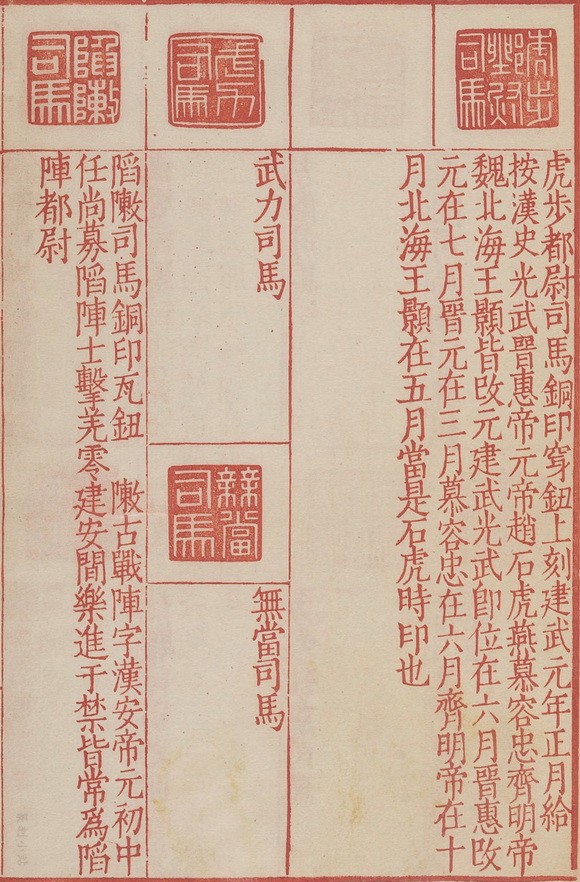 虎步
都尉
司馬
虎步都尉司馬銅印穿鈕上刻建武元年正月給
按漢史光武晉惠帝元帝趙石虎燕慕容忠齊明帝
魏北海王顥皆改元建武光武卽位在六月晉惠改
元在七月晉元在三月慕容忠在六月齊明帝在十
月北海王顥在五月當是石虎時印也
武力
司馬
武力司馬
無當
司馬
無當司馬
陷敶
司馬
陷敶司馬銅印瓦鈕　敶古戰陣字漢安帝元初中
任尚募陷陣士擊羌零建安間樂進于禁皆常爲陷
陣都尉